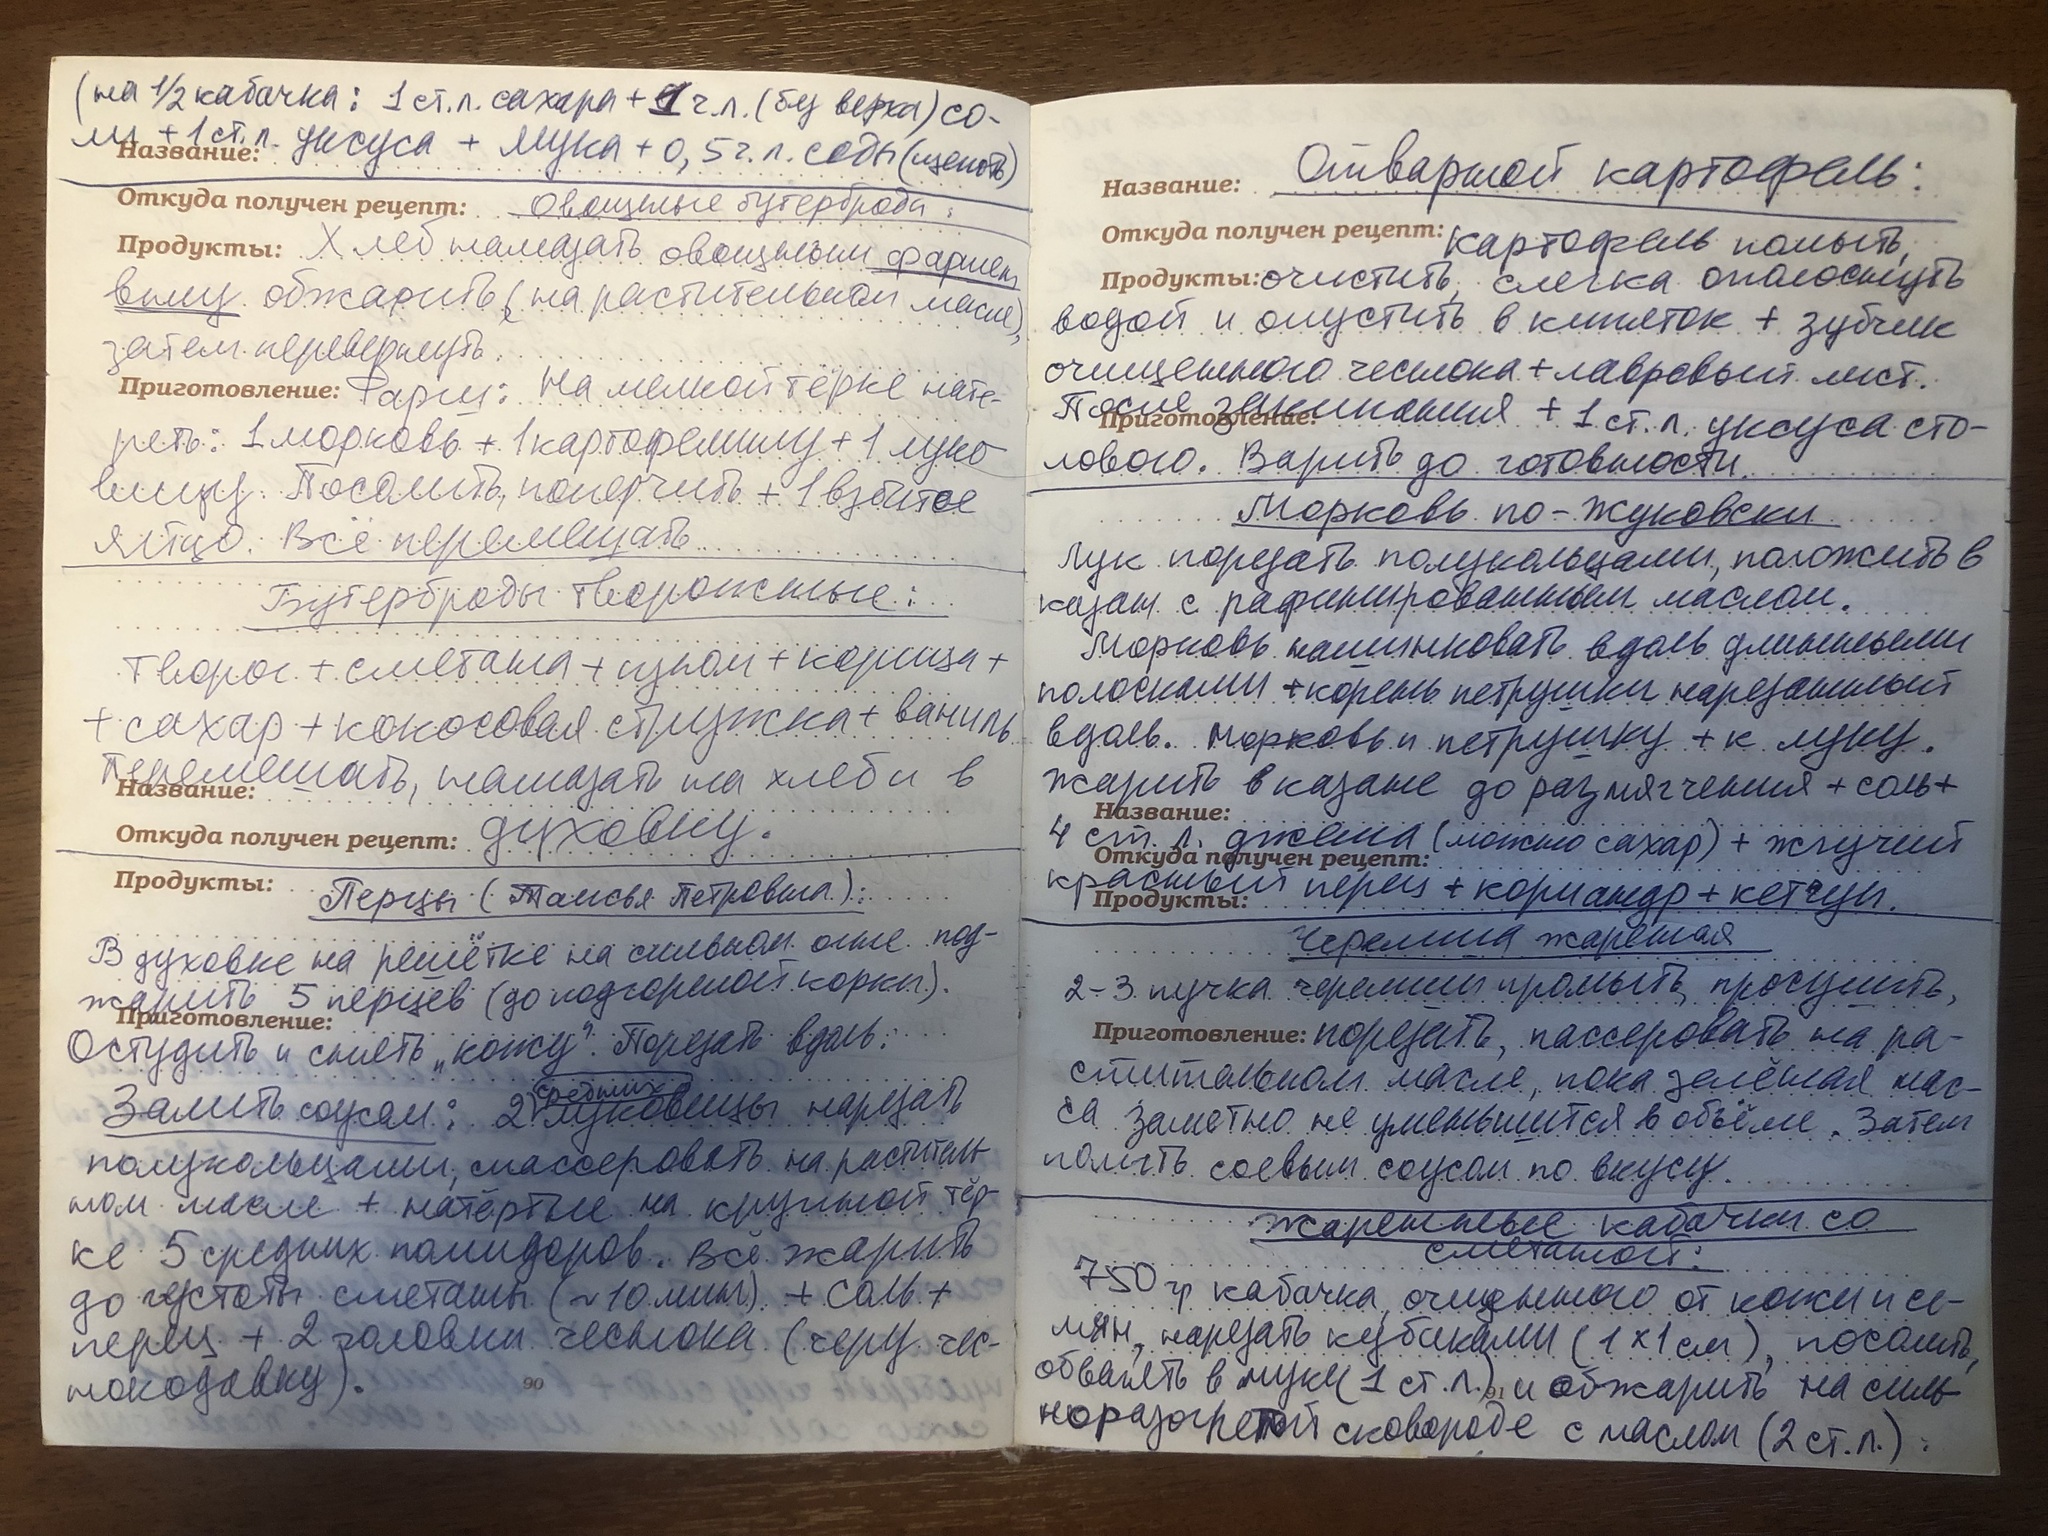 (на 1/2 кабачка: 1 ст.л. сахара + 1 ч.л. (без верха) со-
ли + 1 ст.л. уксуса + мука + 0,5 ч.л. соды (щепоть)
Название:
Откуда получен рецепт: Овощные бутерброды:
Продукты: Хлеб намазать овощным фаршем,
внизу обжарить (на растительном масле),
затем перевернуть.
Приготовление: Фарш: На мелкой тёрке нате-
реть: 1 морковь + 1 картофелину + 1 луко
вицу. Посолить, поперчить + 1 взбитое
яйцо. Всё перемешать
Бутерброды творожные:
творог + сметана + изюм + корица +
+ сахар + кокосовая стружка + ваниль
Перемешать, намазать на хлеб и в
Название:
Откуда получен рецепт: духовку.
Продукты:
Перцы (Таисья Петровна):
В духовке на решётке на сильном огне под-
жарить 5 перцев (до подгорелой корки).
Приготовление:
Остудить и снять „кожу". Порезать вдоль.
средних
Залить соусом: 2 луковицы нарезать
полукольцами, спассеровать на раститель
ном масле + натёртые на крупной тёр-
ке 5 средних помидоров. Всё жарить
до густоты сметаны (~10 мин) + соль +
перец + 2 головки чеснока (через чес-
нокодавку).
90
Название: Отварной картофель:
Откуда получен рецепт: картофель помыть,
Продукты: очистить, слегка ополоснуть
водой и опустить в кипяток + зубчик
очищенного чеснока + лавровый лист.
После закипания + 1 ст.л. уксуса сто-
Приготовление:
лового. Варить до готовности.
Морковь по-Жуковски
Лук порезать полукольцами, положить в
казан с рафинированным маслом.
Морковь нашинковать вдоль длинными
полосками + корень петрушки нарезанный
вдоль. Морковь и петрушку + к луку.
Жарить в казане до размягчения + соль +
Название:
4 ст. л. джема (можно сахар) + жгучий
Откуда получен рецепт:
красный перец + кориандр + кетчуп.
Продукты:
Черемша жареная
2-3 пучка черемши промыть, просушить,
Приготовление: порезать, пассеровать на ра-
стительном масле, пока зелёная мас-
са заметно не уменьшится в объёме. Затем
полить соевым соусом по вкусу.
Жаренные кабачки со
сметаной:
750 гр кабачка, очищенного от кожи и се-
мян, нарезать кубиками (1х1 см), посолить,
обвалять в муке (1 ст.л.) и обжарить на силь
91
норазогретой сковороде с маслом (2 ст.л.).